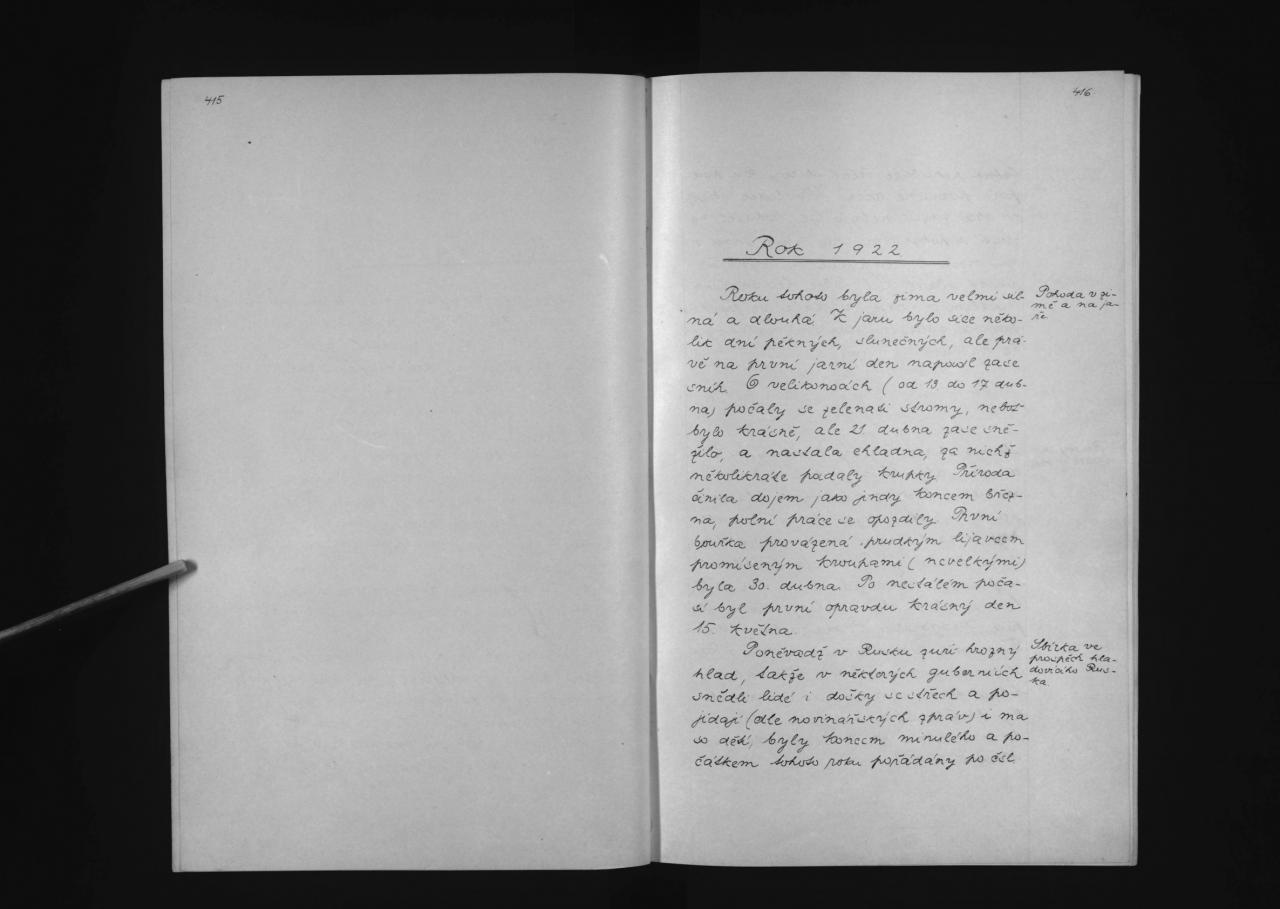 415
416
Rok 1922
Roku tohoto byla zima velmi sil-
ná a dlouhá. K jaru bylo sice něko-
lik dní pěkných, slunečných, ale prá-
vě na první jarní den napadl zase
sníh. O velikonocích (od 13 do 17 dub-
na) počaly se zelenati stromy, neboť
bylo krásně, ale 21 dubna zase sně-
žilo, a nastala chladna, za nichž
několikráte padaly krupky. Příroda
činila dojem jako jindy koncem břez-
na, polní práce se opozdily. První
bouřka provázená prudkým lijavcem
promíseným kroupami (nevelkými)
byla 30. dubna. Po nestálém poča-
sí byl první opravdu krásný den
15. května.
Pohoda v zi-
mě a na ja-
ře.
Poněvadž v Rusku zuří hrozný
hlad, takže v některých guberniích
snědli lidé i došky se střech a po-
jídají (dle novinářských zpráv) i ma
so dětí, byly koncem minulého a po-
čátkem tohoto roku pořádány po čsl.
Sbírka ve
prospěch hla-
dovícího Rus-
ka.